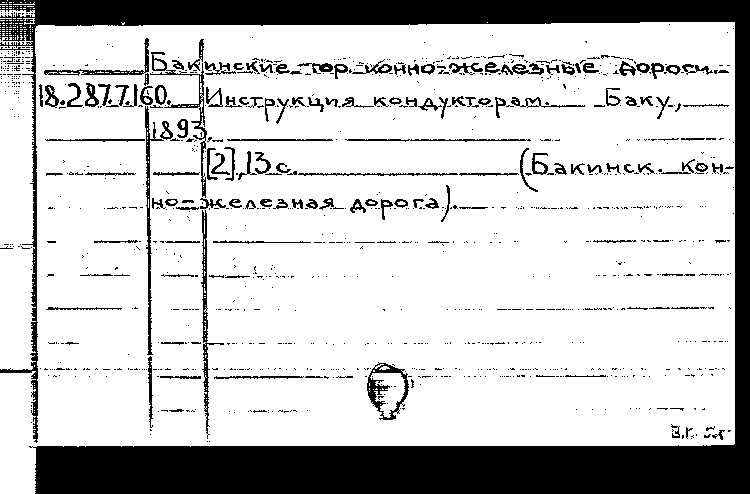 Бакинские гор. конно-железные дороги.
18.287.7.160. Инструкция кондукторам. Баку,
1893.
[2], 13 с. (Бакинск. кон-
но-железная дорога).